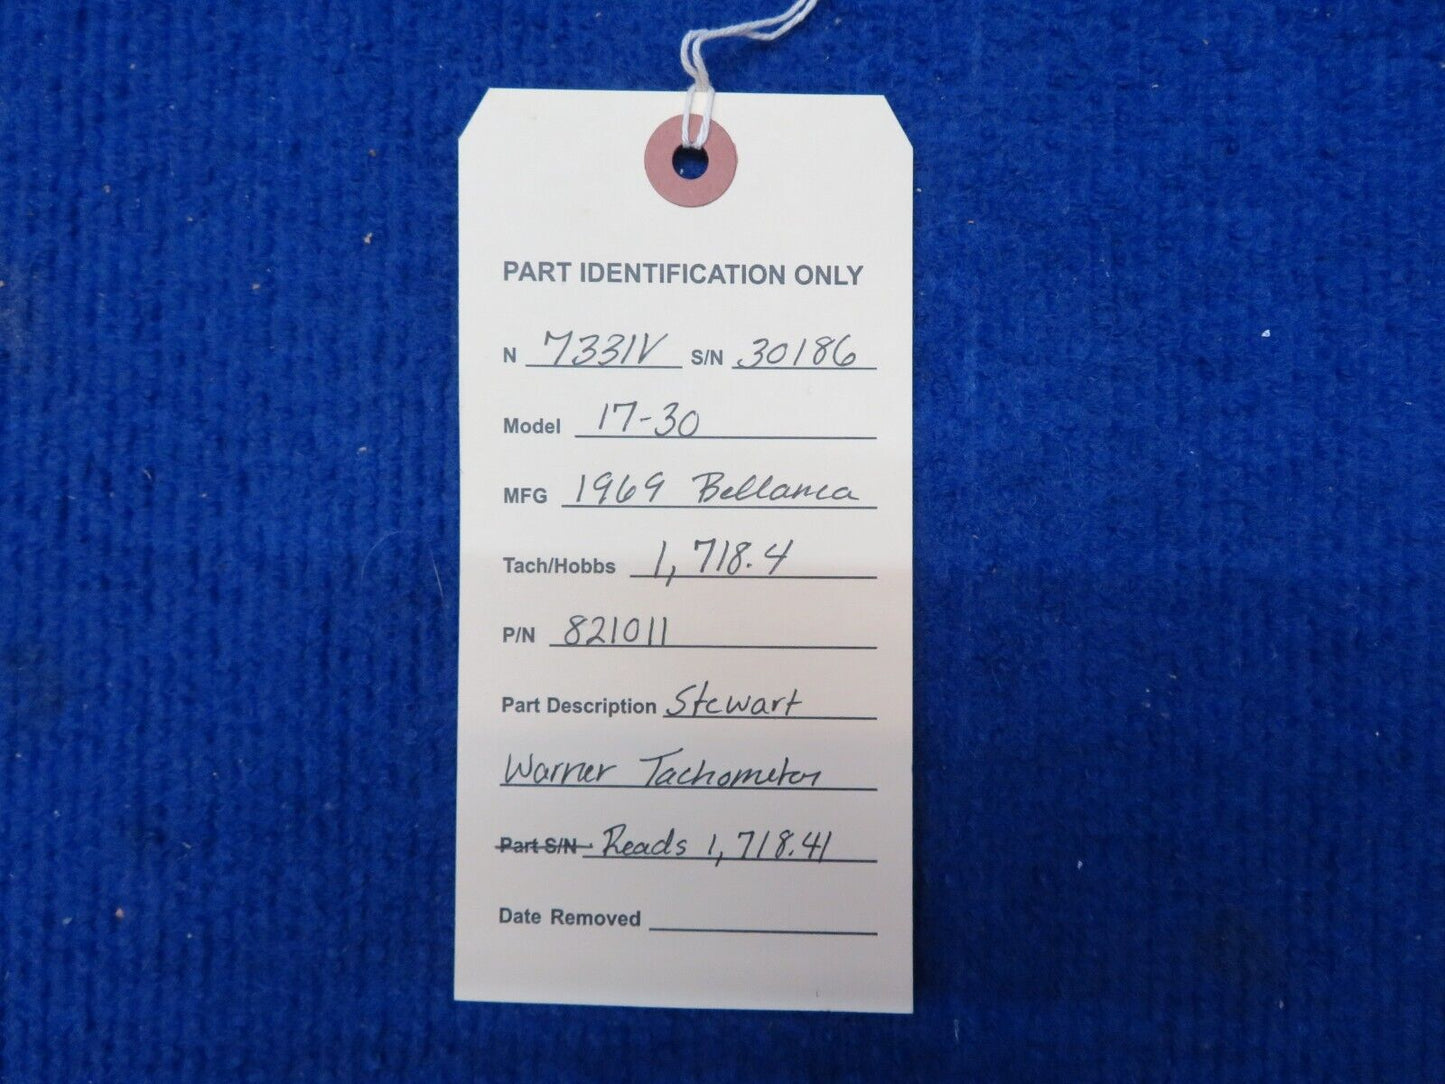 PART IDENTIFICATION ONLY
N 7331V S/N 30186
Model 17-30
MFG 1969 Bellanca
Tach/Hobbs 1,718.4
P/N 821011
Part Description Stewart
Warner Tachometer
Part S/N Reads 1,718.41
Date Removed